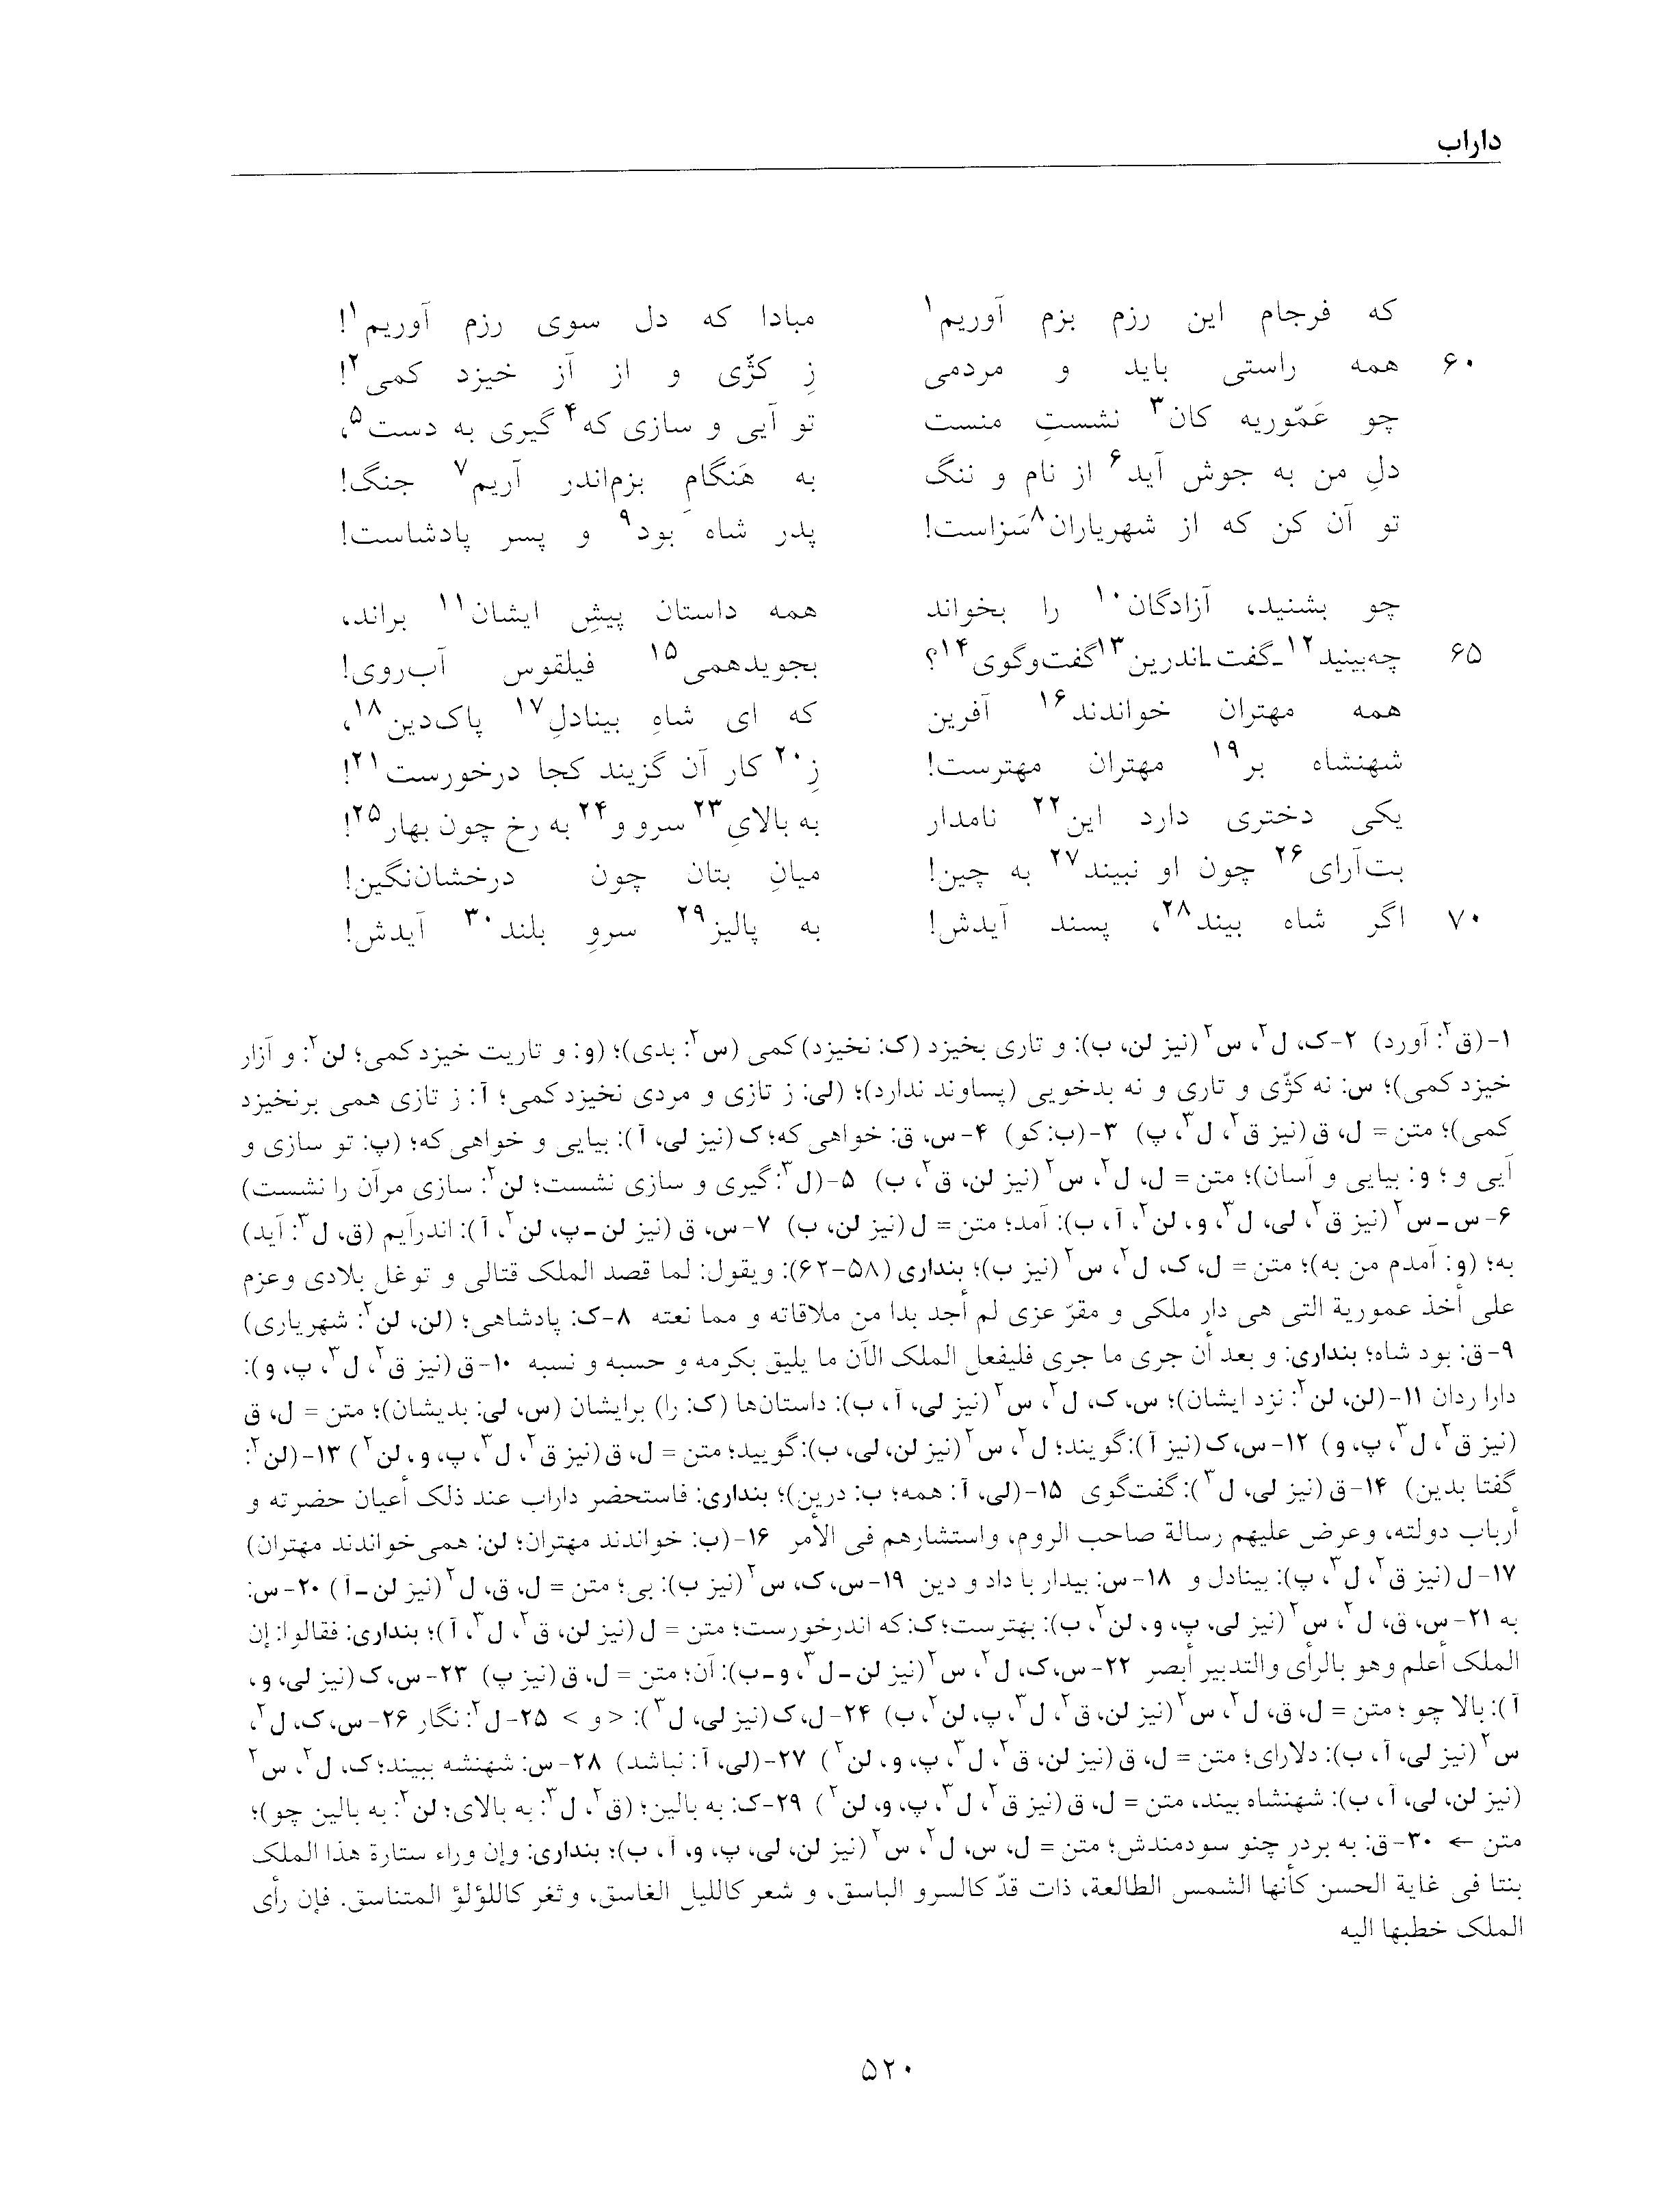 داراب
که فرجام این رزم بزم آوریم۱ مبادا که دل سوی رزم آوریم۱!
۶۰ همه راستی باید و مردمی زِ کژّی و از آز خیزد کمی۲!
چو عَمّوریه کان۳ نشستِ منست تو آیی و سازی که۴ گیری به دست۵،
دلِ من به جوش آید۶ از نام و ننگ به هَنگامِ بزم‌اندر آریم۷ جنگ!
تو آن کن که از شهریاران۸ سَزاست! پدر شاه بود۹ و پسر پادشاست!
چو بشنید، آزادگان۱۰ را بخواند همه داستان پیشِ ایشان۱۱ براند،
۶۵ چه‌بینید۱۲ـگفت‌ـاندرین۱۳ گفت‌وگوی۱۴؟ بجویدهمی۱۵ فیلقوس آب‌روی!
همه مهتران خواندند۱۶ آفرین که ای شاهِ بینادلِ۱۷ پاک‌دین۱۸،
شهنشاه بر۱۹ مهتران مهترست! زِ۲۰ کار آن گزیند کجا درخورست۲۱!
یکی دختری دارد این۲۲ نامدار به بالایِ۲۳ سرو و۲۴ به رخ چون بهار۲۵!
بت‌آرای۲۶ چون او نبیند۲۷ به چین! میانِ بتان چون درخشان‌نگین!
۷۰ اگر شاه بیند۲۸، پسند آیدش! به پالیز۲۹ سروِ بلند۳۰ آیدش!
۱-(ق۲: آورد) ۲-ک، ل۲، س۲ (نیز لن، ب): و تاری بخیزد (ک: نخیزد) کمی (س۲: بدی)؛ (و: و تاریت خیزد کمی؛ لن۲: و آزار
خیزد کمی)؛ س: نه کژّی و تاری و نه بدخویی (پساوند ندارد)؛ (لی: ز تازی و مردی نخیزد کمی؛ آ: ز تازی همی برنخیزد
کمی)؛ متن = ل، ق (نیز ق۲، ل۳، پ) ۳-(ب: کو) ۴-س، ق: خواهی که؛ ک (نیز لی، آ): بیایی و خواهی که؛ (پ: تو سازی و
آیی و؛ و: بیایی و آسان)؛ متن = ل، ل۲، س۲ (نیز لن، ق۲، ب) ۵-(ل۳: گیری و سازی نشست؛ لن۲: سازی مرآن را نشست)
۶-س-س۲ (نیز ق۲، لی، ل۳، و، لن۲، آ، ب): آمد؛ متن = ل (نیز لن، ب) ۷-س، ق (نیز لن-پ، لن۲، آ): اندرآیم (ق، ل۳: آید)
به؛ (و: آمدم من به)؛ متن = ل، ک، ل۲، س۲ (نیز ب)؛ بنداری (۵۸-۶۲): ویقول: لما قصد الملک قتالی و توغل بلادی وعزم
علی أخذ عموریة التی هی دار ملکی و مقرّ عزی لم أجد بدا من ملاقاته و مما نعته ۸-ک: پادشاهی؛ (لن، لن۲: شهریاری)
۹-ق: بود شاه؛ بنداری: و بعد أن جری ما جری فلیفعل الملک الآن ما یلیق بکرمه و حسبه و نسبه ۱۰-ق (نیز ق۲، ل۳، پ، و):
دارا ردان ۱۱-(لن، لن۲: نزد ایشان)؛ س، ک، ل۲، س۲ (نیز لی، آ، ب): داستان‌ها (ک: را) برایشان (س، لی: بدیشان)؛ متن = ل، ق
(نیز ق۲، ل۳، پ، و) ۱۲-س، ک (نیز آ): گویند؛ ل۲، س۲ (نیز لن، لی، ب): گویید؛ متن = ل، ق (نیز ق۲، ل۳، پ، و، لن۲) ۱۳-(لن۲:
گفتا بدین) ۱۴-ق (نیز لی، ل۳): گفت‌گوی ۱۵-(لی، آ: همه؛ ب: درین)؛ بنداری: فاستحضر داراب عند ذلک أعیان حضرته و
أرباب دولته، وعرض علیهم رسالة صاحب الروم، واستشارهم فی الأمر ۱۶-(ب: خواندند مهتران؛ لن: همی خواندند مهتران)
۱۷-ل (نیز ق۲، ل۳، پ): بینادل و ۱۸-س: بیدار با داد و دین ۱۹-س، ک، س۲ (نیز ب): بی؛ متن = ل، ق، ل۲ (نیز لن-آ) ۲۰-س:
به ۲۱-س، ق، ل۲، س۲ (نیز لی، پ، و، لن۲، ب): بهترست؛ ک: که اندرخورست؛ متن = ل (نیز لن، ق۲، ل۳، آ)؛ بنداری: فقالوا: إن
الملک أعلم وهو بالرأی والتدبیر أبصر ۲۲-س، ک، ل۲، س۲ (نیز لن-ل۳، و-ب): آن؛ متن = ل، ق (نیز پ) ۲۳-س، ک (نیز لی، و،
آ): بالا چو؛ متن = ل، ق، ل۲، س۲ (نیز لن، ق۲، ل۳، پ، لن۲، ب) ۲۴-ل، ک (نیز لی، ل۳): <و> ۲۵-ل۲: نگار ۲۶-س، ک، ل۲،
س۲ (نیز لی، آ، ب): دلارای؛ متن = ل، ق (نیز لن، ق۲، ل۳، پ، و، لن۲) ۲۷-(لی، آ: نباشد) ۲۸-س: شهنشه ببیند؛ ک، ل۲، س۲
(نیز لن، لی، آ، ب): شهنشاه بیند، متن = ل، ق (نیز ق۲، ل۳، پ، و، لن۲) ۲۹-ک: به بالین؛ (ق۲، ل۳: به بالای؛ لن۲: به بالین چو)؛
متن ← ۳۰-ق: به بردر چنو سودمندش؛ متن = ل، س، ل۲، س۲ (نیز لن، لی، پ، و، آ، ب)؛ بنداری: وإن وراء ستارة هذا الملک
بنتا فی غایة الحسن کأنها الشمس الطالعة، ذات قدّ کالسرو الباسق، و شعر کاللیل الغاسق، و ثغر کاللؤلؤ المتناسق. فإن رأی
الملک خطبها الیه
۵۲۰